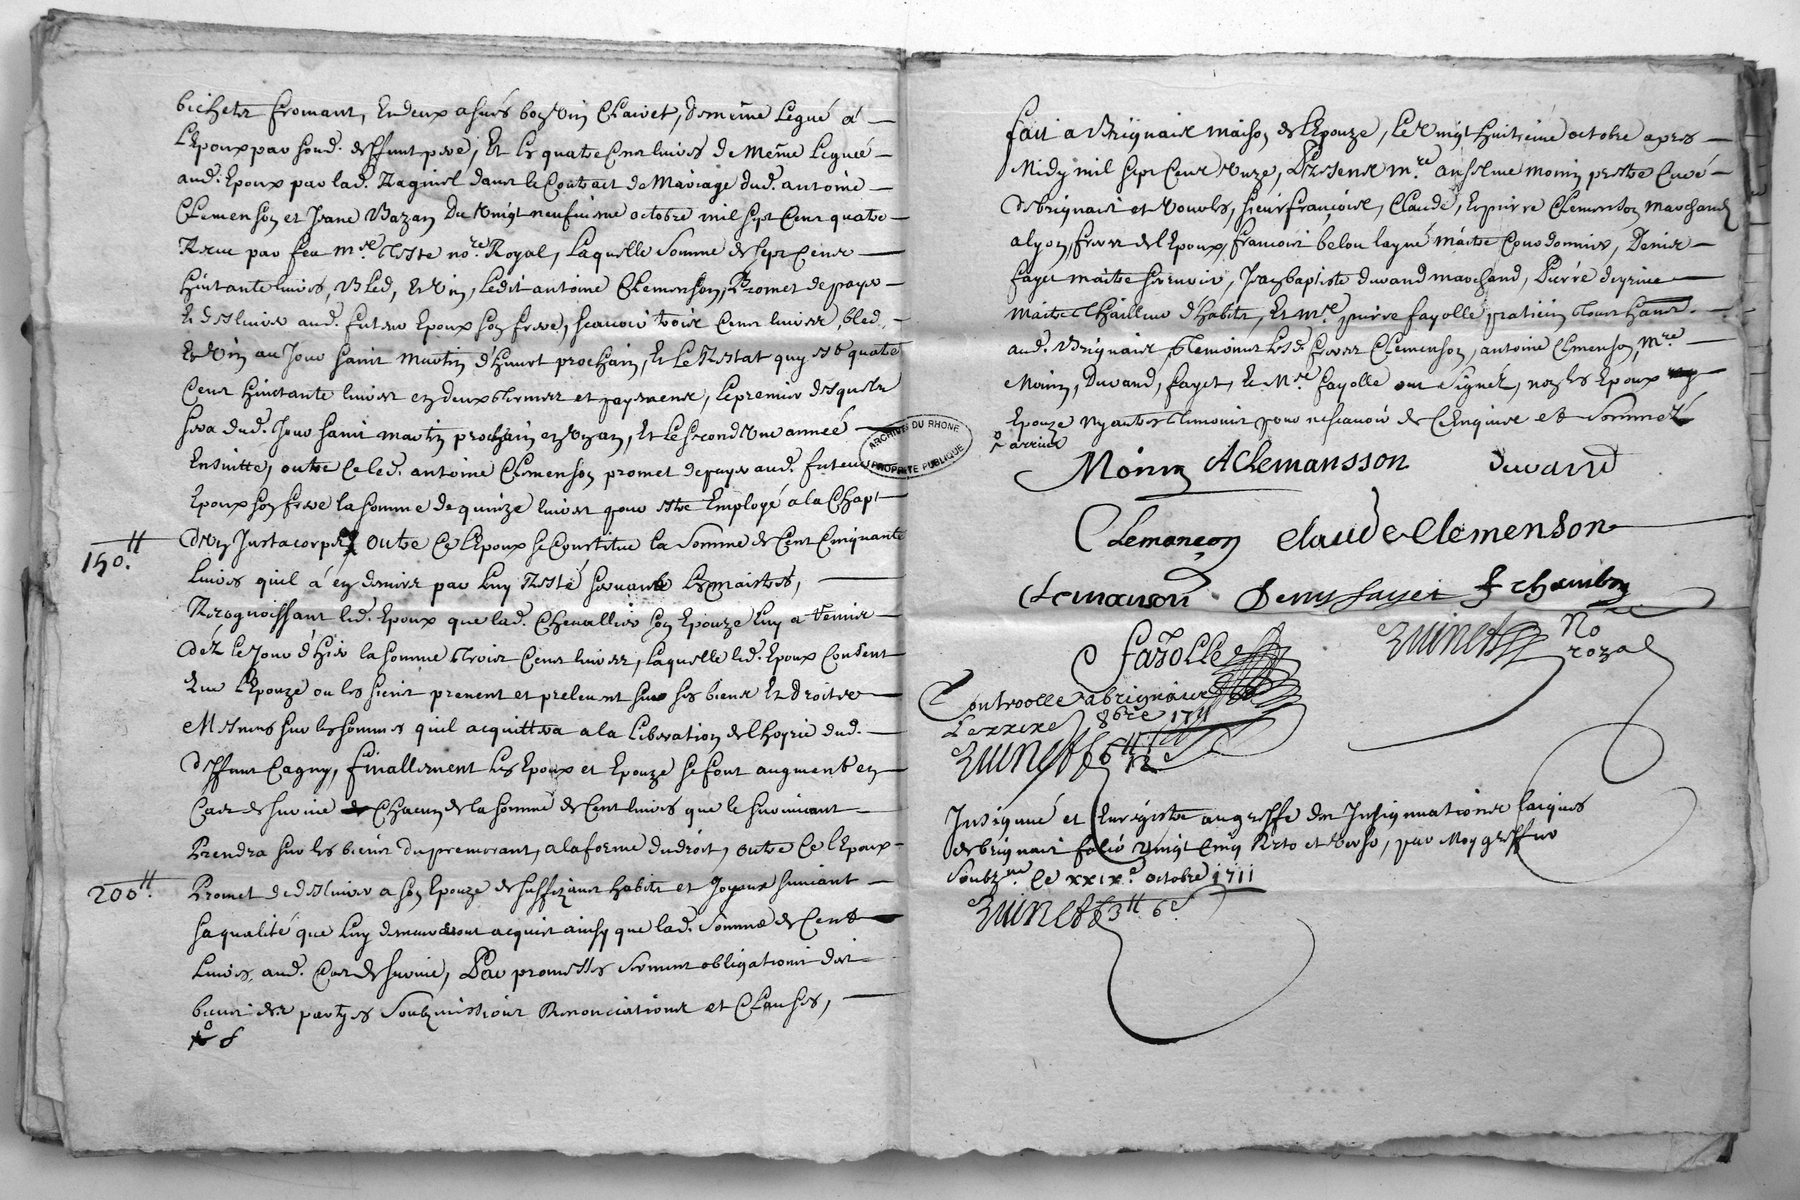 bichetz fromant, Et deux asnés bon vin Clairet, de mesme Legué a
L'Epoux par sond. deffunt pere, Et les quatre Cent livres de Mesme Leguéé
aud. Epoux par lad. Raginel dans le Contrait de Mariage dud. antoine
Clemenson et Jeane Bazan du vingt neufiesme octobre mil sept Cent quatre
Receu par feu Mre teste nore Royal, Laquelle somme de sept Cent
huitante livres, Bled, Et vin, Ledit antoine Clemenson, Promet de payer
Et deslivrer aud. futeur Epoux son frere, scavoir trois Cent livres, bled,
Et vin au Jour saint martin d'hivert prochain, Et Le Restat quy est quatre
Cent huictante livres en deux termes et payement, Le premier desquels
sera dud. Jour saint martin prochain en un an, Et Le second une année
Ensuitte, outre Ce led. antoine Clemenson promet de payer aud. futeur
Epoux son frere la somme de quinze livres pour estre Employé a la Chapt
d'un Justacorps, outre Ce L'Epoux se Constitue la somme de Cent Cinquante
150.tt
Livres quil á en deniers par Luy Resté servant Les maistres,
Recognoissant led. Epoux que lad. Chevallier son Epouze Luy a remis
déz le Jour d'hier la somme trois Cent livres, Laquelle led. Epoux Consent
Que L'Epouze ou les siens prenent et prelevent sur ses biens Et droits
Mesmes sur les sommes quil acquittera a la Liberation de L'hoyrie dud.
deffunt Cagny, finallement Les Epoux et Epouze se font augment en
Cas de survie de Chacun de la somme de Cent livres que le survivant
Prendra sur les biens du premorant, a la forme du droit, outre Ce l'Epoux
200tt.
Promet de deslivrer a son Epouze de suffizans habits et Joyaux suivant
sa qualité que Luy demeureront acquis ainsy que lad. somme de Cent
Livres, aud. Cas de survie, Par promesses serment obligations des
biens des partyes soubzmissions Renonciations et Clauses,
fait a Brignais maison de L'Epouze, Le vingt huitieme octobre apres
Midy mil sept Cent unze, Presens mre anselme moinin prestre Curé
de brignais et vourles, sieur françois, Claude, Et pierre Clemenson marchand
a lyon, freres de L'Epoux, francois belou layné maitre Courdonnier, Denis
fayet maitre serrurier, Jean baptiste durand marchand, Pierre deyrieu
Maitre thailleur d'habits, Et Mre pierre fayolle praticien tous habit.
aud. Brignais, temoins Lesd. freres Clemenson, antoine Clemenson, Mre
Moinin, Durand, fayet, Et Mre fayolle ont signez, non les Epoux
Epouze ny autres temoins pour ne scavoir de Ce Enquise et Sommez
Moinin AClemansson durand
Clemançon Claude Clemenson
Clemanson Denis fayet f chambry
Fayolle
Zuinet No re royal
Controolle a brignais
Le xxixe 8bre 1711
Zuinet
Insinué et Enregistré au greffe des Insignuations laiques
de brignais folio vingt Cinq Recto et verso, par Moy greffier
Soubzné. Ce xxixe. octobre 1711
Zuinet 3tt 6s
ARCHIVES DU RHÔNE
PROPRIÉTÉ PUBLIQUE